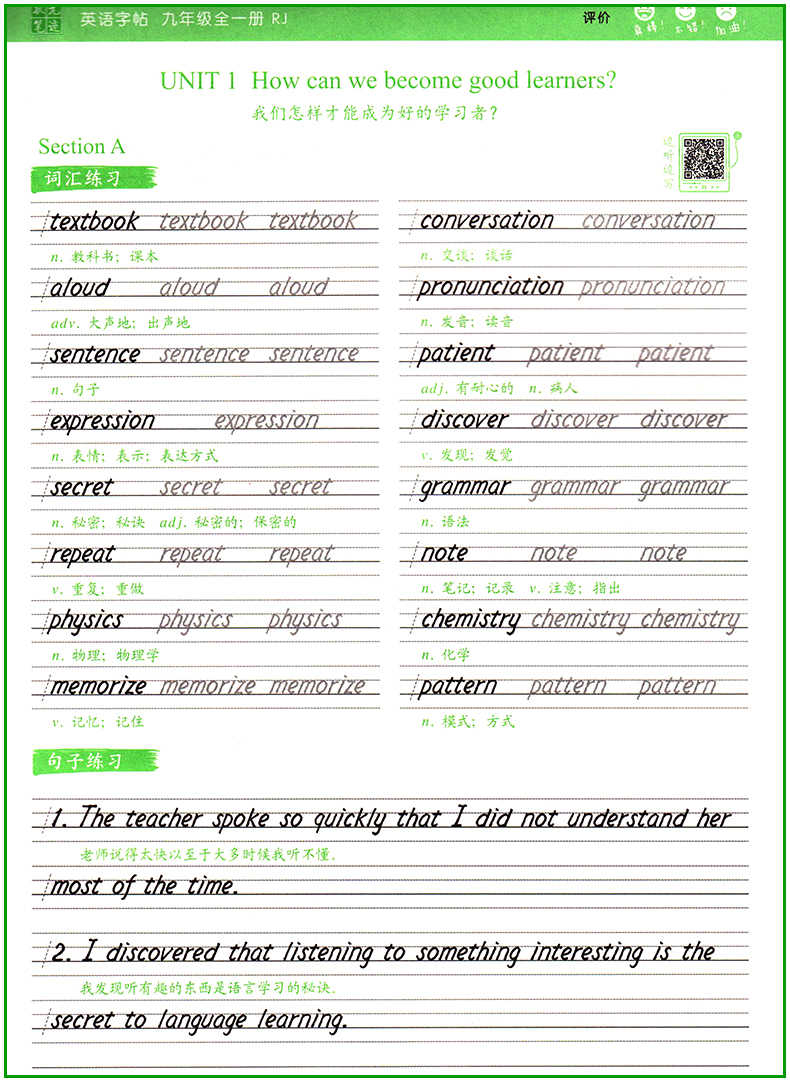 英语字帖 九年级全一册 RJ
评价
真棒! 不错! 加油!
UNIT 1 How can we become good learners?
我们怎样才能成为好的学习者?
Section A
边听边写
词汇练习
textbook textbook textbook
n. 教科书; 课本
aloud aloud aloud
adv. 大声地; 出声地
sentence sentence sentence
n. 句子
expression expression
n. 表情; 表示; 表达方式
secret secret secret
n. 秘密; 秘诀 adj. 秘密的; 保密的
repeat repeat repeat
v. 重复; 重做
physics physics physics
n. 物理; 物理学
memorize memorize memorize
v. 记忆; 记住
conversation conversation
n. 交谈; 谈话
pronunciation pronunciation
n. 发音; 读音
patient patient patient
adj. 有耐心的 n. 病人
discover discover discover
v. 发现; 发觉
grammar grammar grammar
n. 语法
note note note
n. 笔记; 记录 v. 注意; 指出
chemistry chemistry chemistry
n. 化学
pattern pattern pattern
n. 模式; 方式
句子练习
1. The teacher spoke so quickly that I did not understand her
老师说得太快以至于大多时候我听不懂。
most of the time.
2. I discovered that listening to something interesting is the
我发现听有趣的东西是语言学习的秘诀。
secret to language learning.